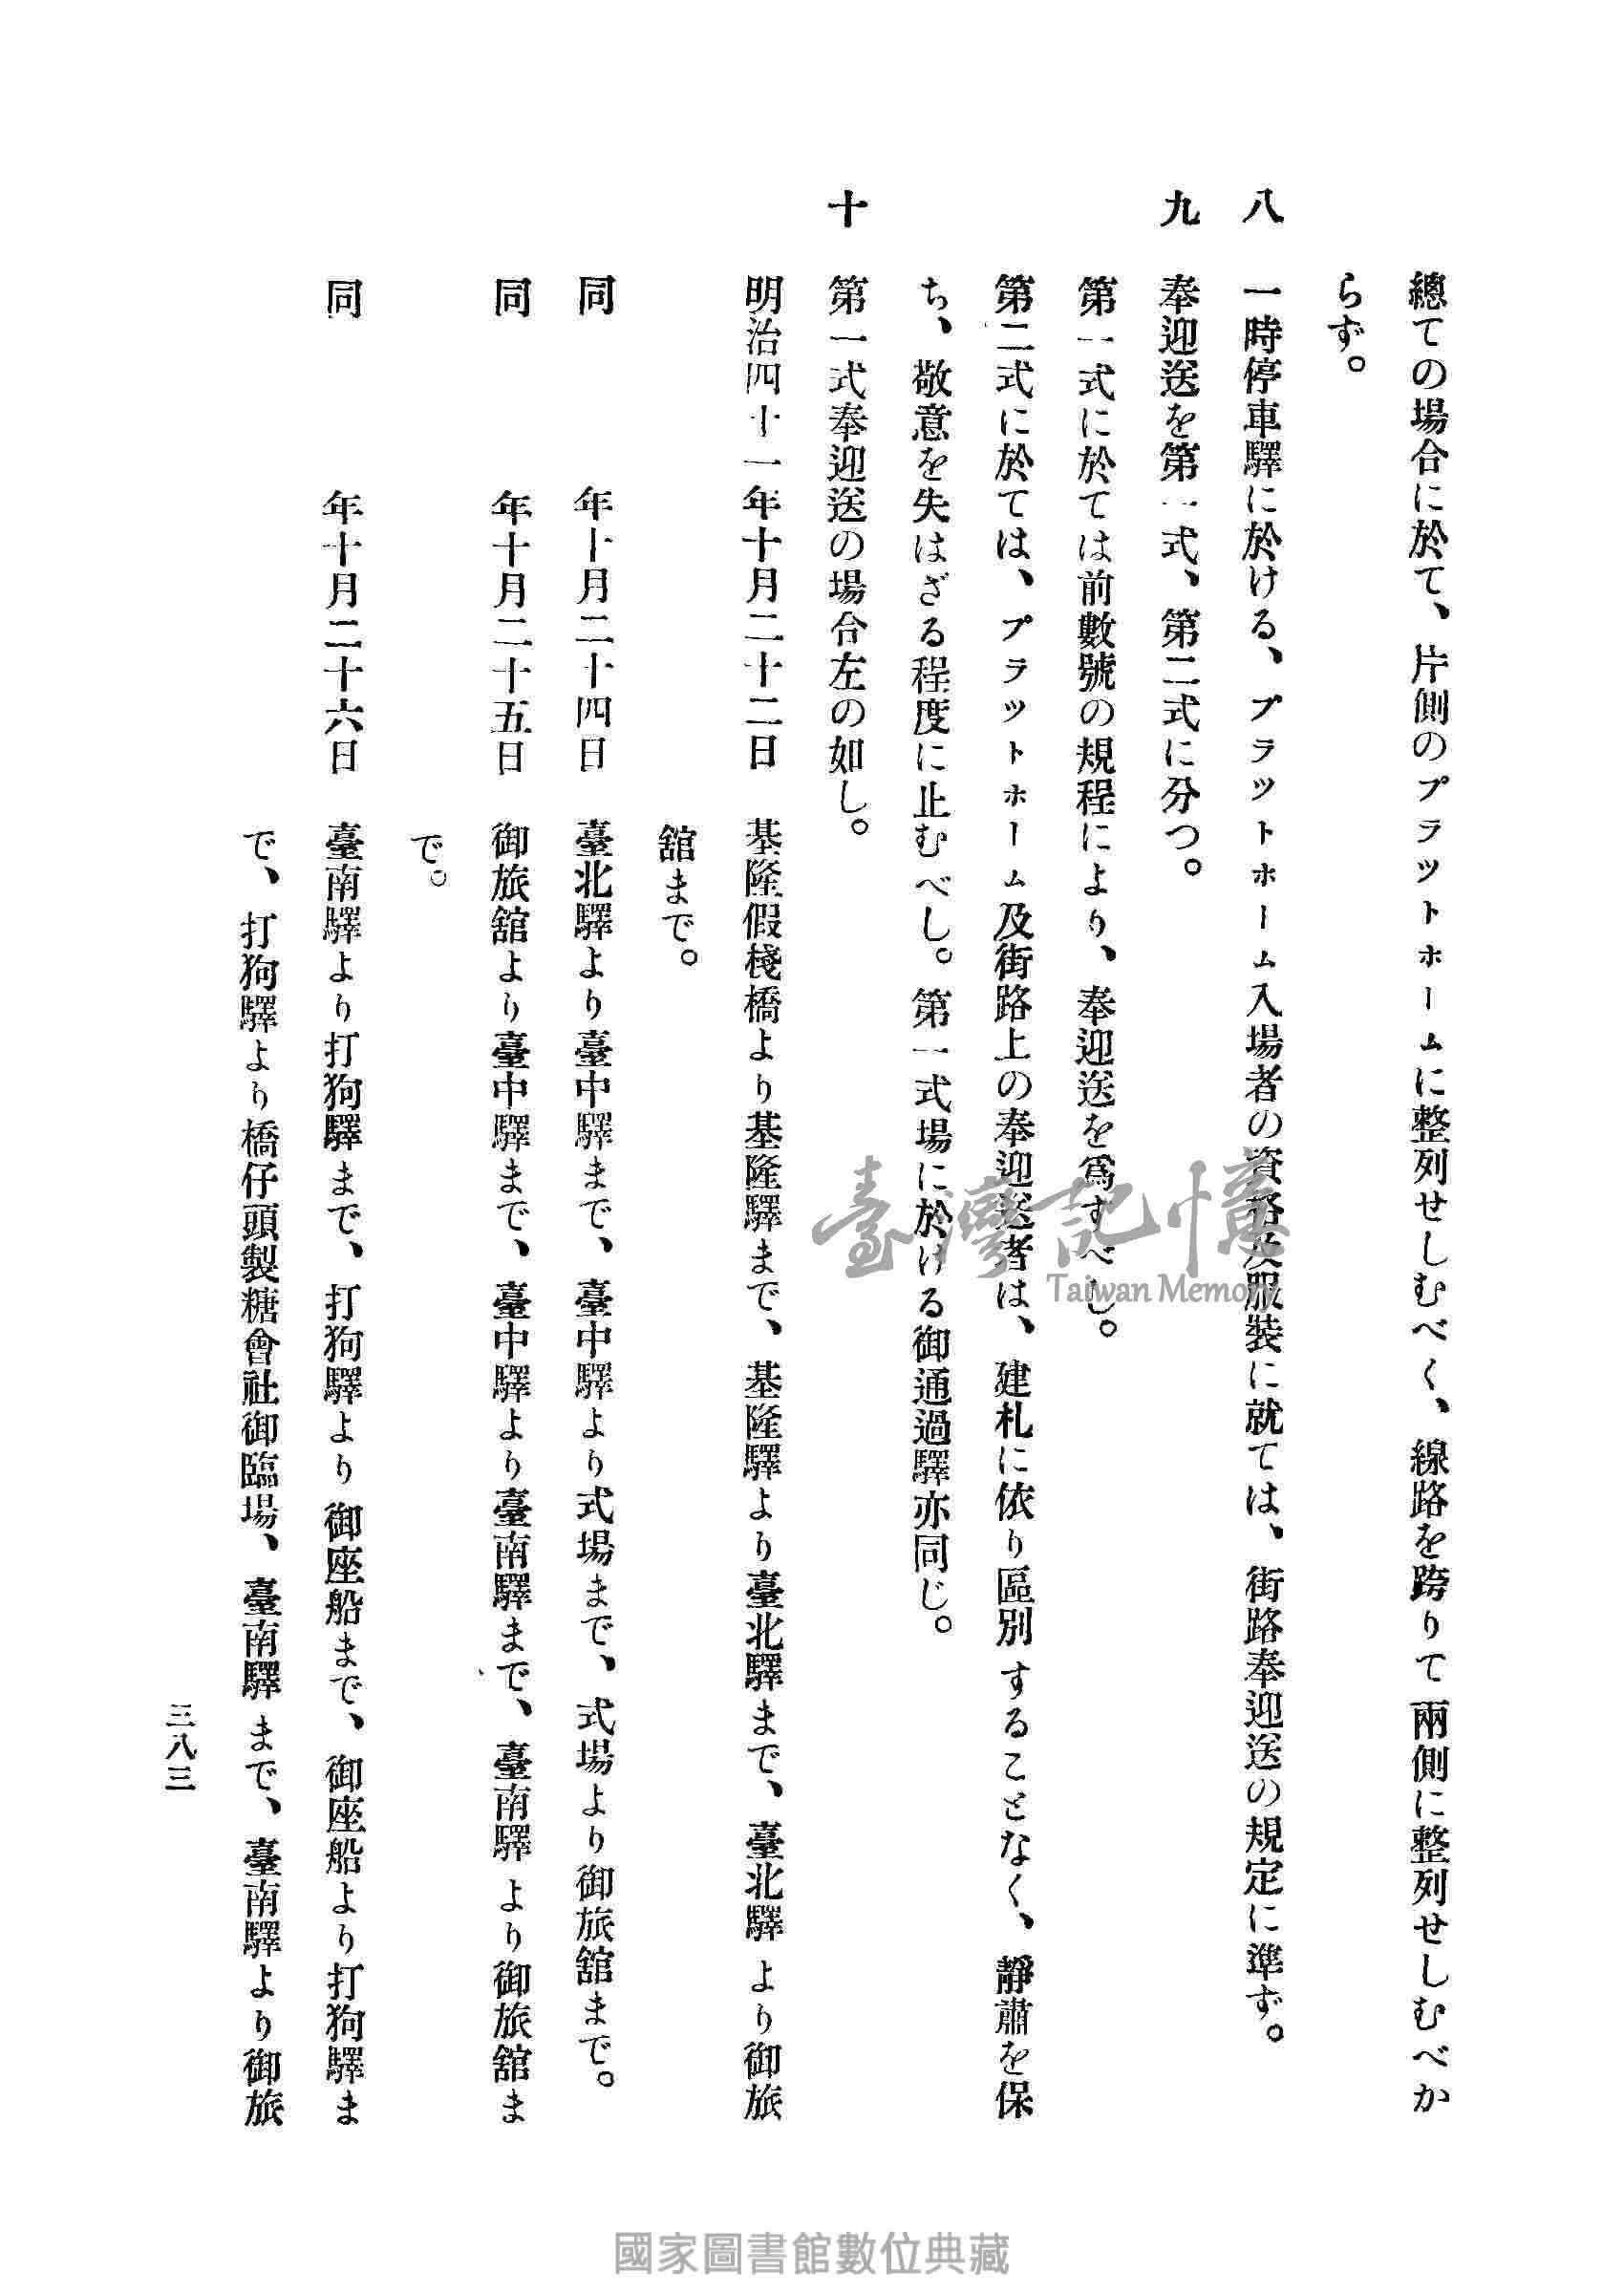 總ての場合に於て、片側のプラットホームに整列せしむべく、線路を跨りて兩側に整列せしむべか
らず。
八 一時停車驛に於ける、プラットホーム入場者の資格及服裝に就ては、街路奉迎送の規定に準ず。
九 奉迎送を第一式、第二式に分つ。
第一式に於ては前數號の規程により、奉迎送を爲すべし。
第二式に於ては、プラットホーム及街路上の奉迎送者は、建札に依り區別することなく、靜肅を保
ち、敬意を失はざる程度に止むべし。第一式場に於ける御通過驛亦同じ。
十 第一式奉迎送の場合左の如し。
明治四十一年十月二十二日 基隆假棧橋より基隆驛まで、基隆驛より臺北驛まで、臺北驛より御旅
舘まで。
同 年十月二十四日 臺北驛より臺中驛まで、臺中驛より式場まで、式場より御旅舘まで。
同 年十月二十五日 御旅舘より臺中驛まで、臺中驛より臺南驛まで、臺南驛より御旅舘ま
で。
同 年十月二十六日 臺南驛より打狗驛まで、打狗驛より御座船まで、御座船より打狗驛ま
で、打狗驛より橋仔頭製糖會社御臨場、臺南驛まで、臺南驛より御旅
三八三
臺灣記憶
Taiwan Memory
國家圖書館數位典藏